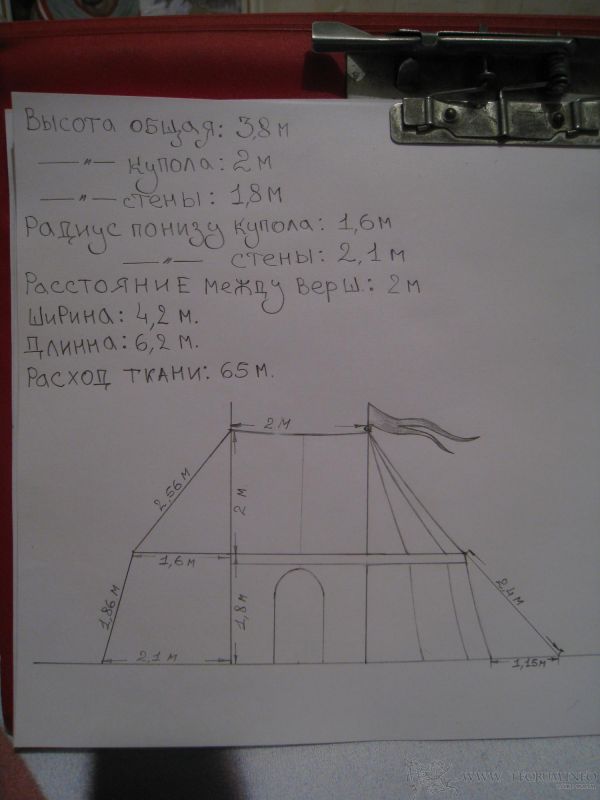 Высота общая: 3,8 м
—〃— купола: 2 м
—〃— стены: 1,8 м
Радиус понизу купола: 1,6 м
—〃— стены: 2,1 м
Расстояние между верш.: 2 м
Ширина: 4,2 м.
Длинна: 6,2 м.
Расход ткани: 65 м.
2 м
2,56 м
2 м
1,6 м
1,86 м
1,8 м
2,4 м
2,1 м
1,15 м